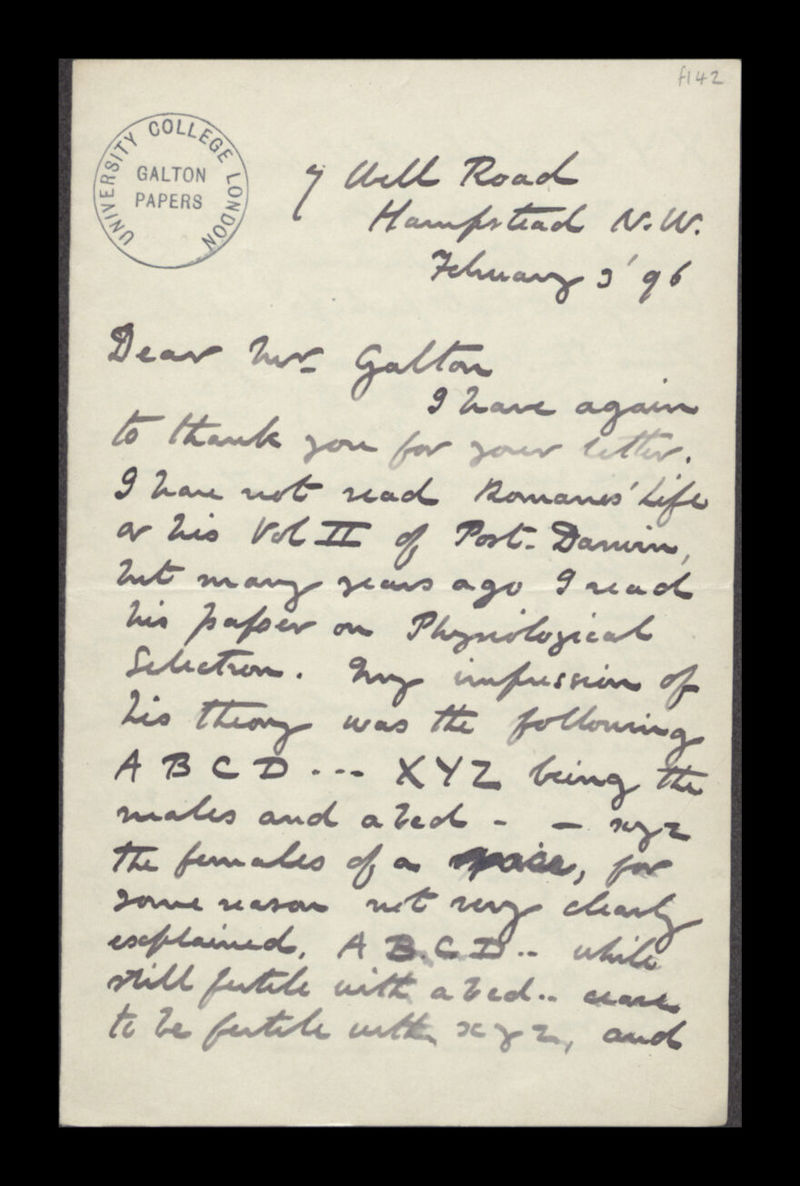 f142
UNIVERSITY COLLEGE LONDON
GALTON
PAPERS
7 Well Road
Hampstead N.W.
February 3' 96
Dear Mr Galton
I have again
to thank you for your letter.
I have not read Romanes' Life
or his Vol II of Post-Darwin,
but many years ago I read
his paper on Physiological
Selection. My impression of
his theory was the following
A B C D --- X Y Z being the
males and a b c d - - x y z
the females of a species, for
some reason not very clearly
explained, A B. C D.. while
still fertile with a b c d.. cease
to be fertile with x y z, and